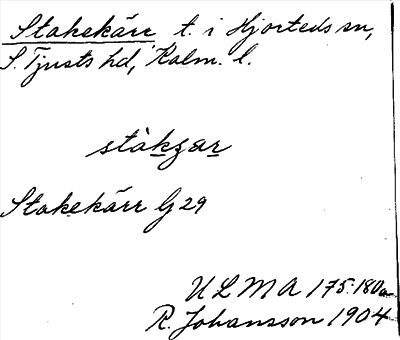 Stakekärr t. i Hjorteds sn,
S. Tjusts hd, Kalm. l.
stàkʒar
Stakekärr G 29
ULMA 175:180a
R. Johansson 1904